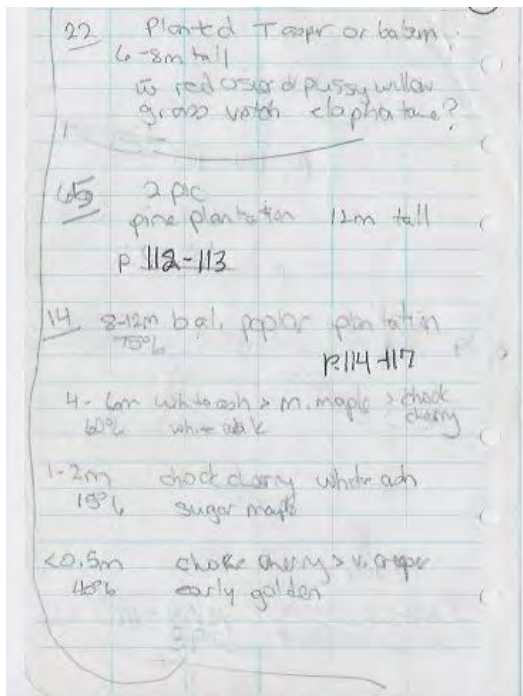 22 Planted T aspr or balsm
6-8m tall
w red osier & pussy willow
grass vetch
65 2 pic
pine plantation 12m tall
p 112-113
14 8-12m bal. poplar plantation
75%
P.114-117
4-6m white ash > m. maple > chock cherry
60% white oak
1-2m chock cherry white ash
15% sugar maple
<0.5m choke cherry > v. creeper
40% early golden